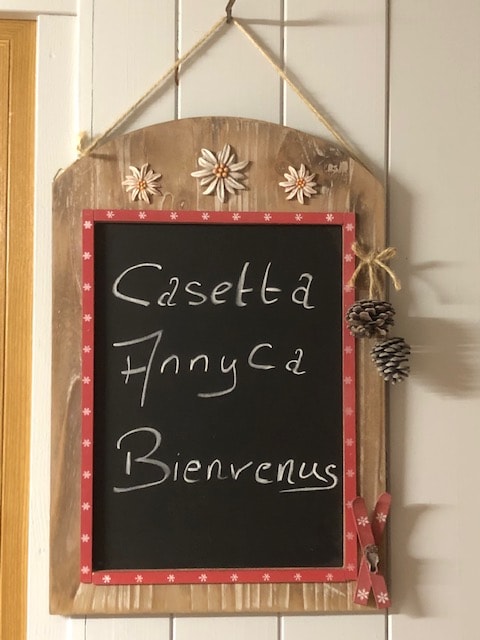 Casetta
AnnyCa
Bienvenus